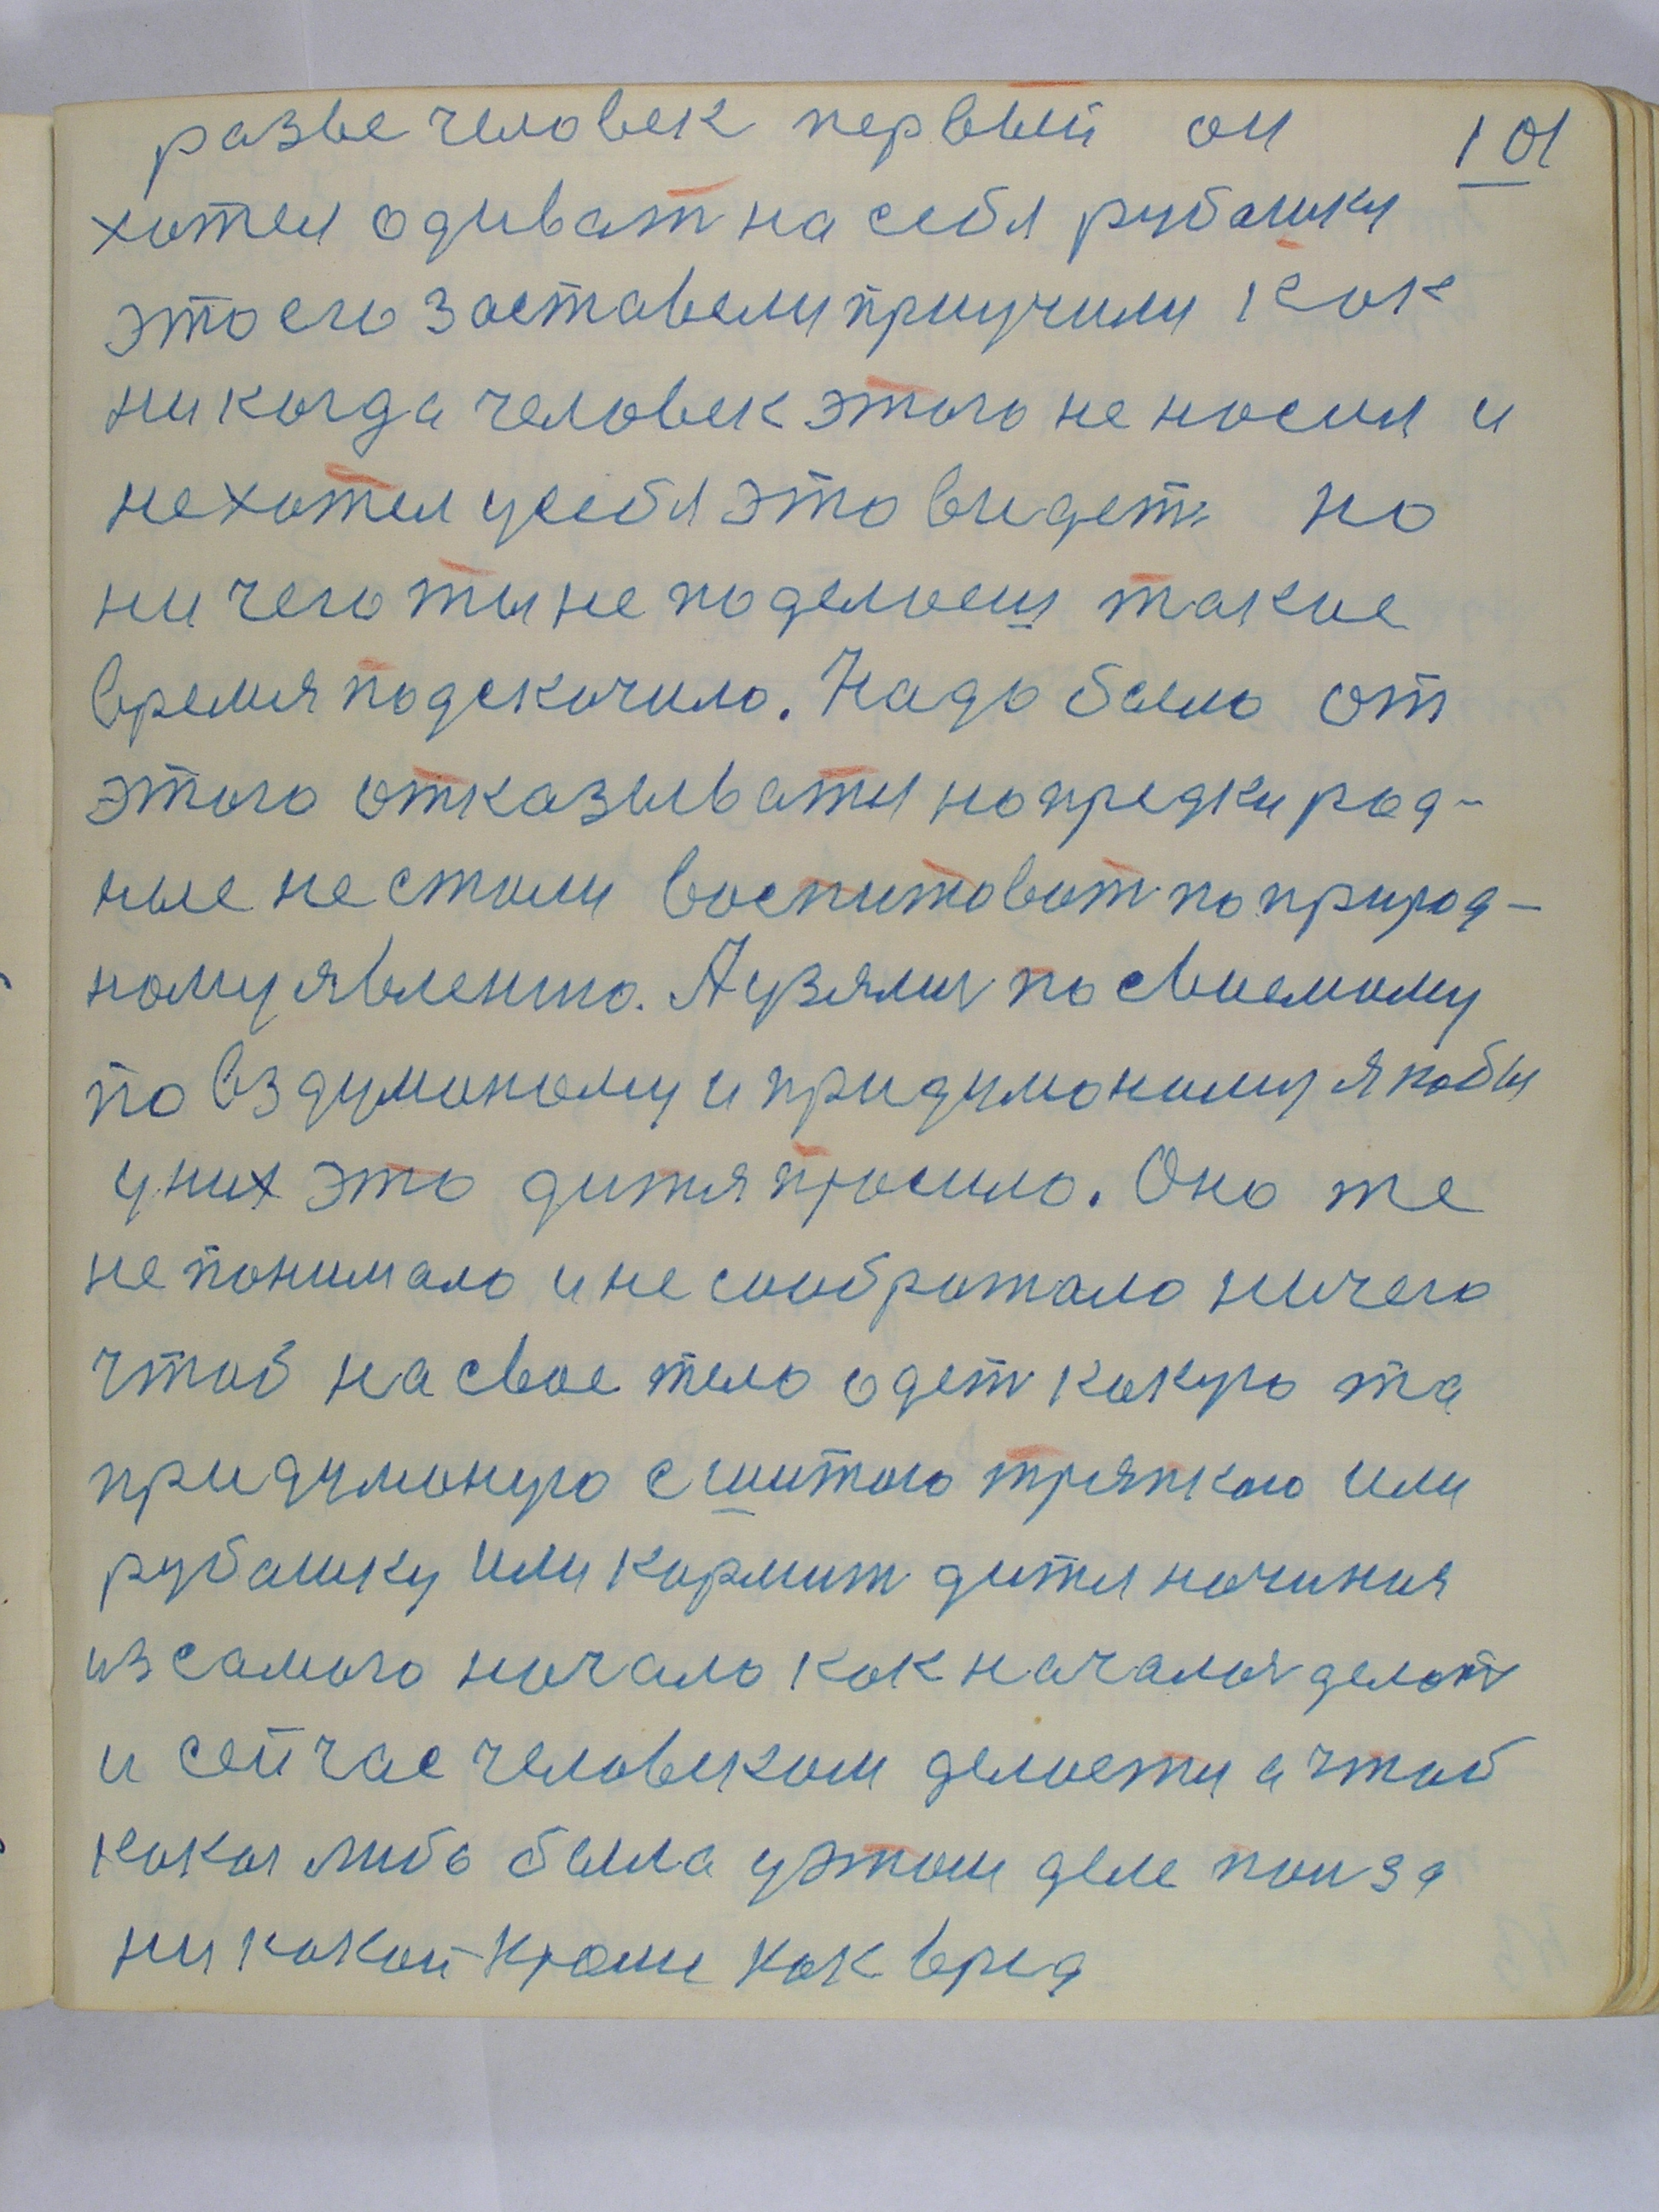 разве человек первый он 101
хотел одиват на себя рубашку
это его заставели приучили как
ни когда человек этого не носил и
не хотел у себя это видеть но
ни чего ты не поделоеш такие
время подскочило. Надо было от
этого отказыватся но предки род-
ные не стали воспитоват по природ-
ному явлению. А узяли по своемому
по вздуманому и придуманому якобы
у них это дитя просило. Оно же
не понимало и не соображало ничего
чтоб на свое тело одеть какую та
придуманую сшитою тряпкою или
рубашку или кормит дитя начиная
из самого начало как начался делат
и сейчас человеком делается а чтоб
какая либо была у этом деле полза
ни какой кроме как вред